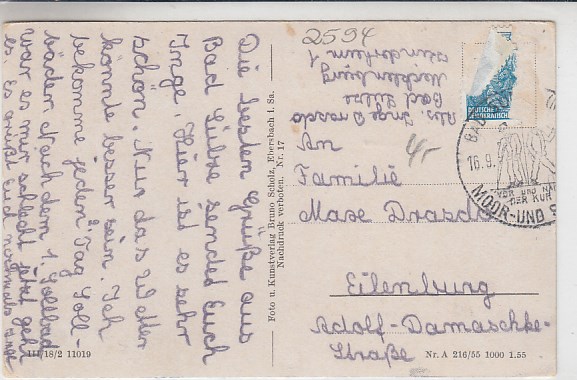 Die besten Grüße aus
Bad Sülze sendet Euch
Inge. Hier ist es sehr
schön. Nur das Wetter
könnte besser sein. Ich
bekomme jeden 2. Tag Soll-
bäder. Nach dem 1. Sollbad
war es mir schlecht jetzt geht
es. Es grüßt Euch nochmals Inge
III/18/2 11019
Foto u. Kunstverlag Bruno Scholz, Ebersbach i. Sa.
Nachdruck verboten. Nr. 17
2594
Abs. Inge Drasdo
Bad Sülze
4,-
DEUTSCHE
DEMOKRATISCHE
BAD
16.9.
VOR UND NACH
DER KUR
MOOR-UND S
An
Familie
Max Drasdo
Eilenburg
Adolf-Damaschke-
Straße
Nr. A 216/55 1000 1.55